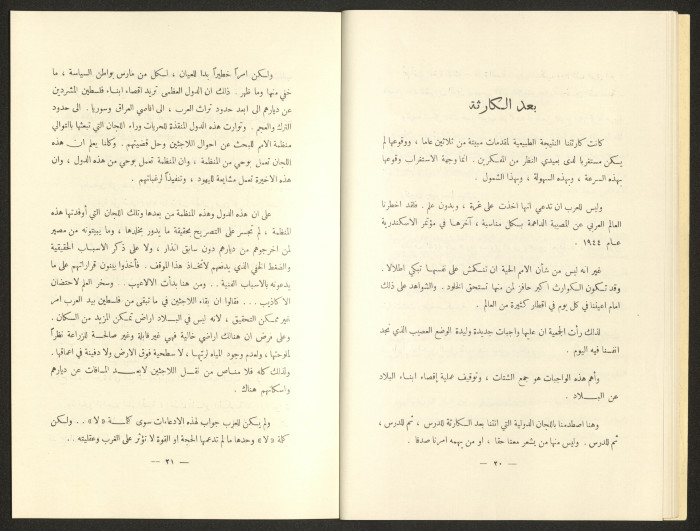 بعد الكارثة
كانت كارثتنا النتيجة الطبيعية لمقدمات مبيتة من ثلاثين عاما ، ووقوعها لم
يكن مستغربا لدى بعيدي النظر من المفكرين . انما وجهة الاستغراب وقوعها
بهذه السرعة ، وبهذه السهولة ، وبهذا الشمول .
وليس للعرب ان تدعي انها اخذت على غرة ، وبدون علم . فلقد اخطرنا
العالم العربي عن المصيبة الداهمة بكل مناسبة ، آخرها في مؤتمر الاسكندرية
عام ١٩٤٤ .
غير انه ليس من شأن الامم الحية ان تنكمش على نفسها تبكي اطلالا .
وقد تكون الكوارث اكبر حافز لمن منها تستحق الخلود . والشواهد على ذلك
امام اعيننا في كل يوم في اقطار كثيرة من العالم .
لذلك رأت الجمعية ان عليها واجبات جديدة وليدة الوضع العصيب الذي نجد
انفسنا فيه اليوم .
وأهم هذه الواجبات هو جمع الشتات ، وتوقيف عملية إقصاء ابناء البلاد
عن البلاد .
وهنا اصطدمنا باللجان الدولية التي اتتنا بعد الكارثة للدرس ، ثم للدرس ،
ثم للدرس . وليس منها من يشعر معنا حقا ، او من يهمه امرنا صدقا .
— ٢٠ —
ولكن امراً خطيراً بدا للعيان ، لكل من مارس بواطن السياسة ، ما
خفي منها وما ظهر . ذلك ان الدول العظمى تريد اقصاء ابناء فلسطين المشردين
عن ديارهم الى ابعد حدود تراث العرب ، الى اقاصي العراق وسوريا . الى حدود
الترك والعجم . وتوارت هذه الدول المنقذة للحريات وراء اللجان التي تبعثها بالتوالي
منظمة الامم للبحث عن احوال اللاجئين وحل قضيتهم . وكلنا يعلم ان هذه
اللجان تعمل بوحي من المنظمة ، وان المنظمة تعمل بوحي من هذه الدول ، وان
هذه الاخيرة تعمل مشايعة لليهود ، وتنفيذاً لرغباتهم .
على ان هذه الدول وهذه المنظمة من بعدها وتلك اللجان التي أوفدتها هذه
المنظمة ، لم تجسر على التصريح بحقيقة ما يدور بخلدها ، وما يبيتونه من مصير
لمن اخرجوهم من ديارهم دون سابق انذار ، ولا على ذكر الاسباب الحقيقية
والضغط الخفي الذي يدفعهم لاتخاذ هذا الموقف . فأخذوا يبنون قراراتهم على ما
يدعونه بالاسباب الفنية .. ومن هنا بدأت الالاعيب .. وسخر العلم لاحتضان
الاكاذيب ... فقالوا ان بقاء اللاجئين في ما تبقى من فلسطين بيد العرب امر
غير ممكن التحقيق ، لانه ليس في البلاد اراض تمكن المزيد من السكان .
وعلى فرض ان هنالك اراضي خالية فهي غير قابلة وغير صالحة للزراعة نظراً
لملوحتها ، ولعدم وجود المياه لريها ، لا سطحية فوق الارض ولا دفينة في اعماقها .
ولذلك كله فلا مناص من نقل اللاجئين لابعد المسافات عن ديارهم
واسكانهم هناك .
ولم يكن للعرب جواب لهذه الادعاءات سوى كلمة « لا » .. ولكن
كلمة « لا » وحدها ما لم تدعمها الحجة او القوة لا تؤثر على الغرب وعقليته ..
— ٢١ —